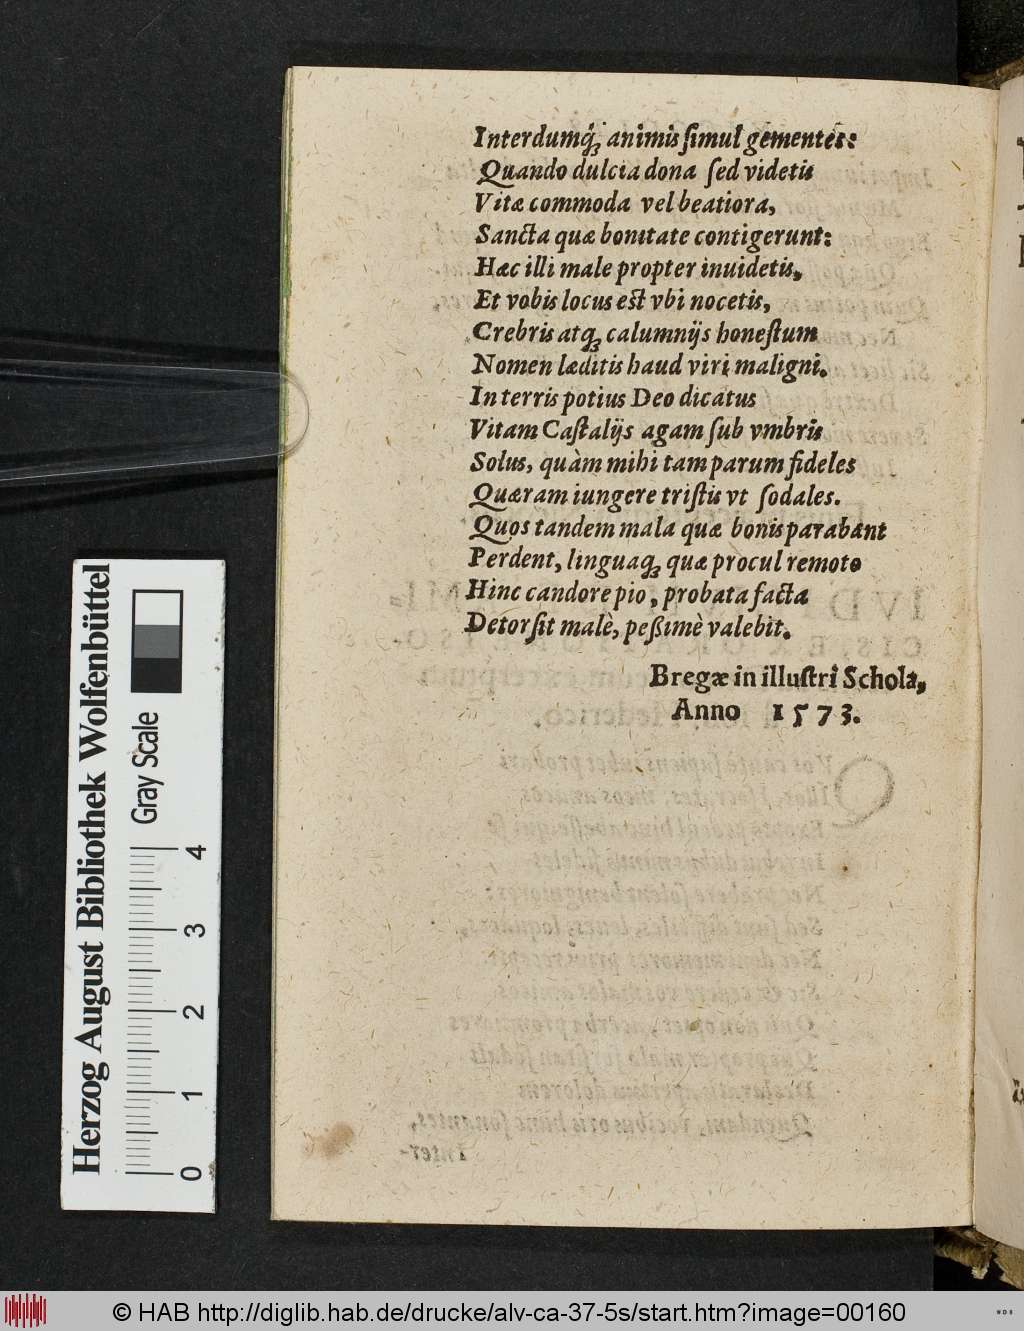 Interdumq́ꝫ animis ſimul gementes:
Quando dulcia dona ſed videtis
Vitæ commoda vel beatiora,
Sancta quæ bonitate contigerunt:
Hæc illi male propter inuidetis,
Et vobis locus eſt vbi nocetis,
Crebris atqꝫ calumnijs honeſtum
Nomen læditis haud viri maligni.
In terris potius Deo dicatus
Vitam Caſtalijs agam ſub vmbris
Solus, quàm mihi tam parum fideles
Quæram iungere triſtis vt ſodales.
Quos tandem mala quæ bonis parabant
Perdent, linguaqꝫ quæ procul remoto
Hinc candore pio, probata facta
Detorſit malè, peßimè valebit.
Bregæ in illuſtri Schola,
Anno 1573.
Herzog August Bibliothek Wolfenbüttel
Gray Scale
0 1 2 3 4
© HAB http://diglib.hab.de/drucke/alv-ca-37-5s/start.htm?image=00160